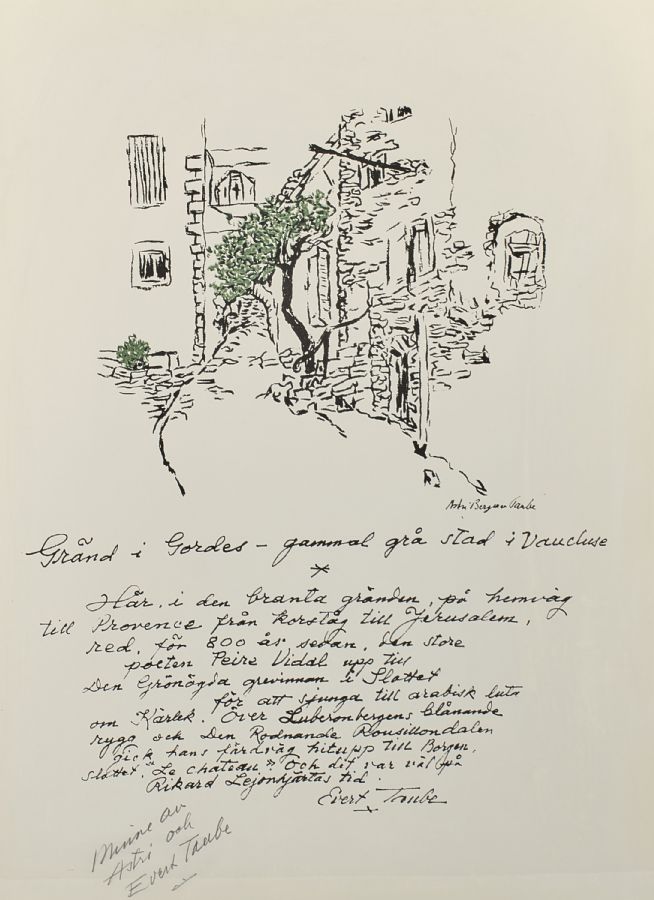 Astri Bergman Taube
Gränd i Gordes – gammal grå stad i Vaucluse
Här, i den branta gränden, på hemväg
till Provence från korståg till Jerusalem,
red, för 800 år sedan, den store
poeten Peire Vidal upp till
Den Grönögda grevinnan i Slottet
för att sjunga till arabisk luta
om Kärlek. Över Luberonbergens blånande
rygg och Den Rodnande Rousillondalen
gick hans färdväg hitupp till Borgen,
slottet, "Le chateau"? Och det var väl på
Rikard Lejonhjärtas tid.
Evert Taube
Minne av
Astri och
Evert Taube